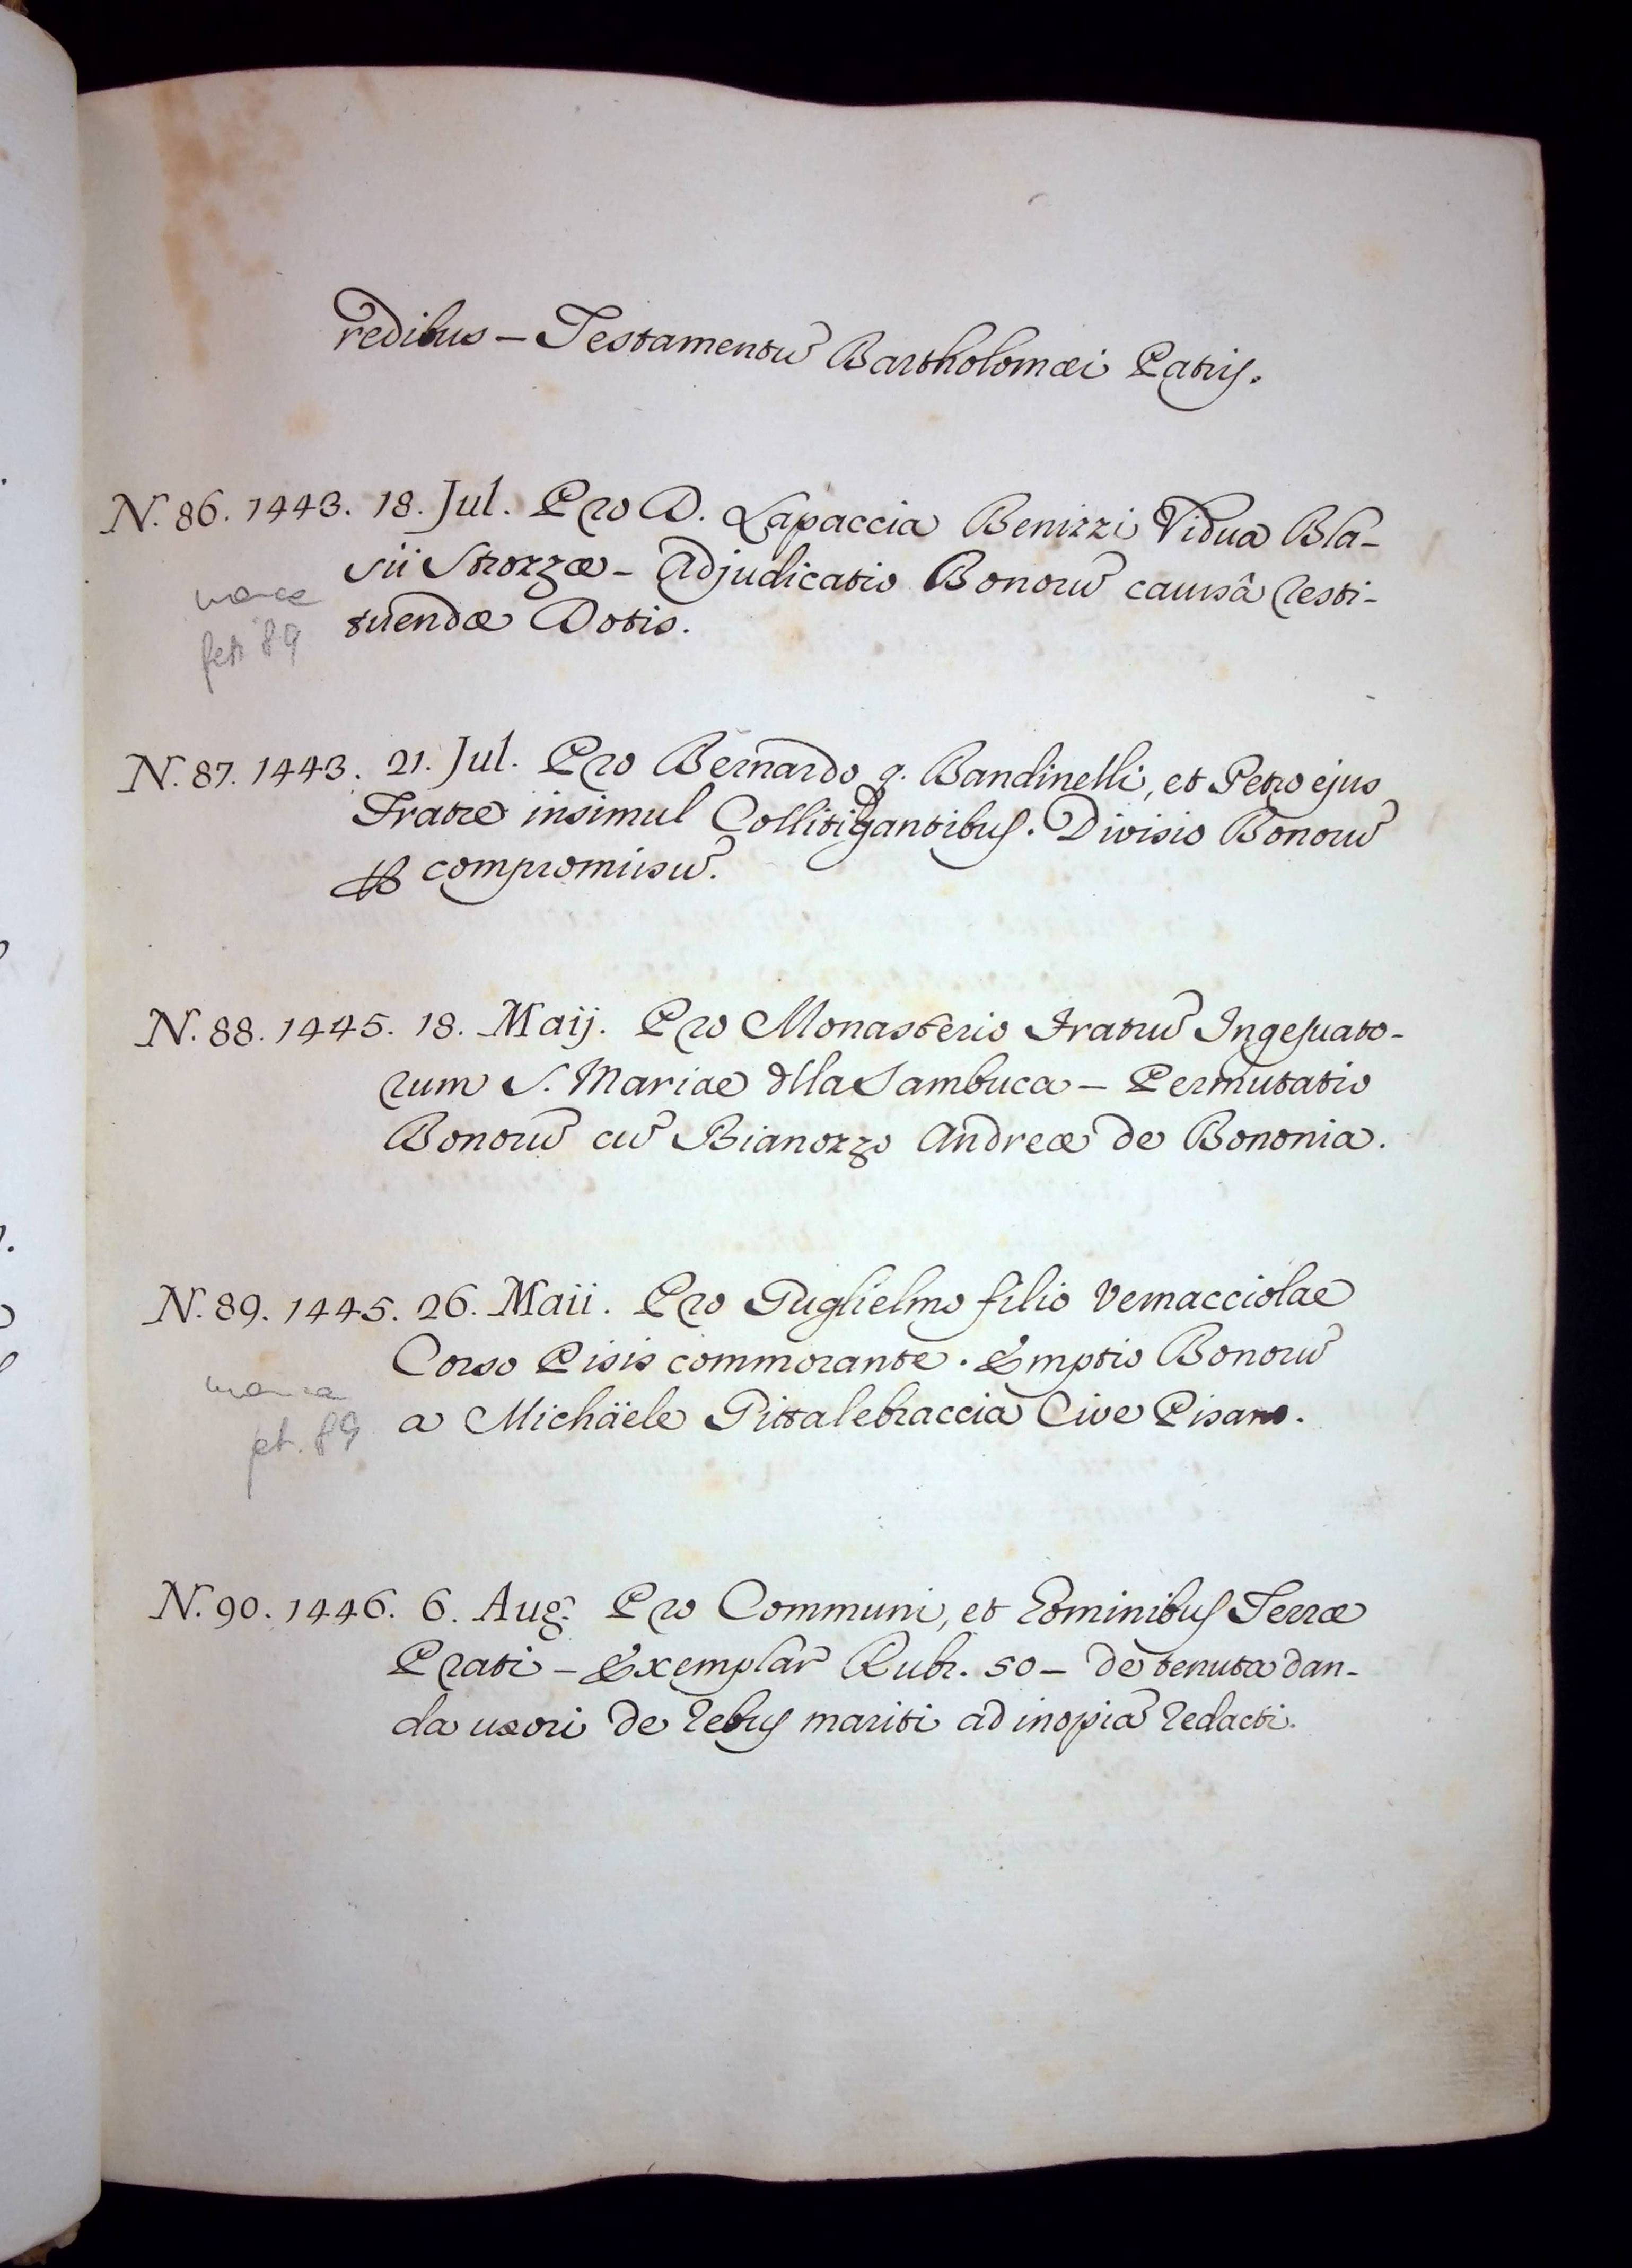 redibus – Testamentū Bartholomæi Patris.
N. 86. 1443. 18. Jul. Pro D. Lapaccia Benizzi Vidua Bla-
sii Strozzæ – Adjudicatio Bonorū causâ resti-
manca
tuendæ Dotis.
feb 89
N. 87. 1443. 21. Jul. Pro Bernardo q. Bandinelli, et Petro ejus
Fratre insimul Collitigantibus. Divisio Bonorū
compromissū.
N. 88. 1445. 18. Maij. Pro Monasterio Fratrū Ingesuato-
rum S. Mariae dlla Sambuca – Permutatio
Bonorū cū Bianozzo Andreæ de Bononia.
N. 89. 1445. 26. Maii. Pro Guglielmo filio Vernacciolae
Corso Pisis commorante. Emptio Bonorū
manca
a Michäele Gittalebraccia Cive Pisano.
feb. 89
N. 90. 1446. 6. Aug. Pro Communi, et Hominibus Terræ
Prati – Exemplar Rubr. 50 – de tenuta dan-
da uxori de rebus mariti ad inopiā redacti.